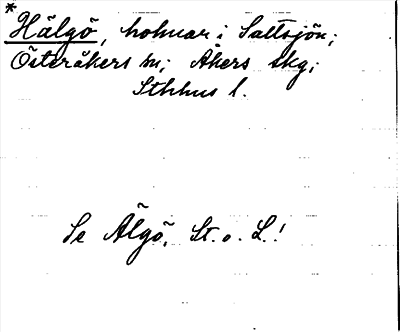 * Hälgö, holmar i Saltsjön;
Österåkers sn; Åkers skg;
Sthlms l.
Se Älgö, St. o. L.!